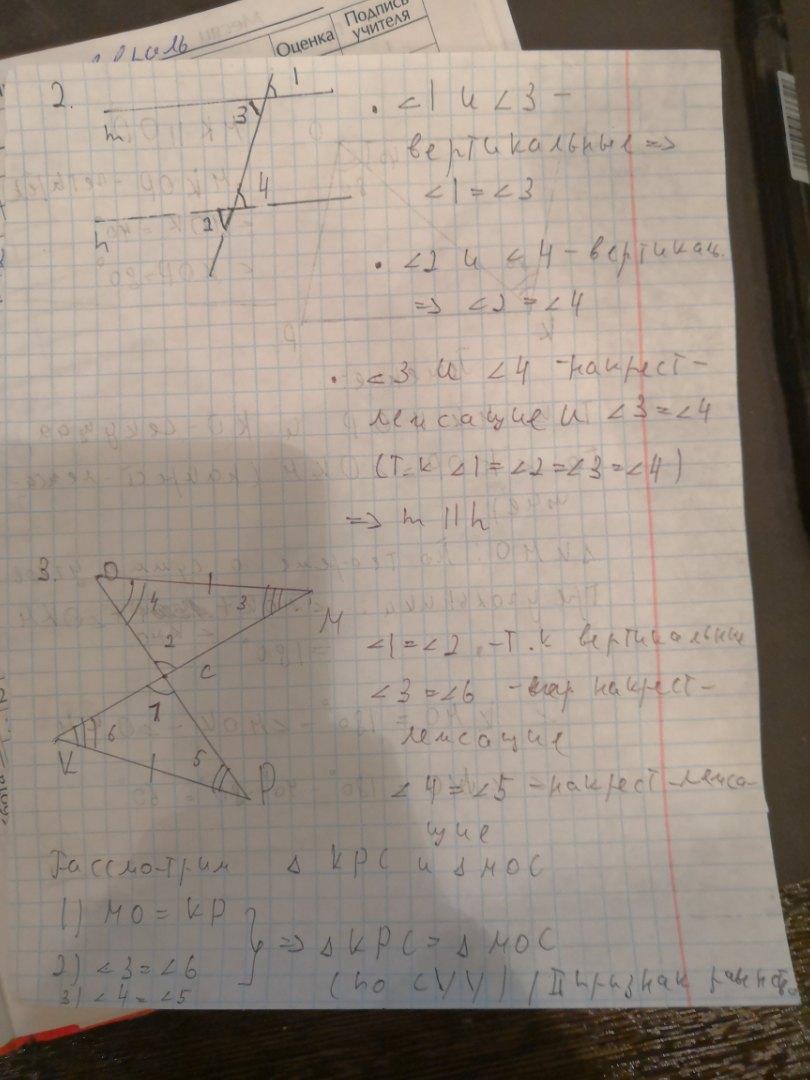 Оценка
Подпись
учителя
2.
1
3
m
4
2
n
• <1 и <3 -
вертикальные =>
<1 = <3
• <2 и <4 - вертикал.
=> <2 = <4
• <3 и <4 - накрест-
лежащие и <3 = <4
(т.к <1 = <2 = <3 = <4)
=> m || n
3.
O
4
3
M
2
C
1
6
K
5
P
<1 = <2 - т.к вертикальные
<3 = <6 - накрест-
лежащие
<4 = <5 - накрест-лежа-
щие
Рассмотрим Δ KPC и Δ MOC
1) MO = KP
2) <3 = <6
3) <4 = <5
=> Δ KPC = Δ MOC
(по СУУ) / II признак